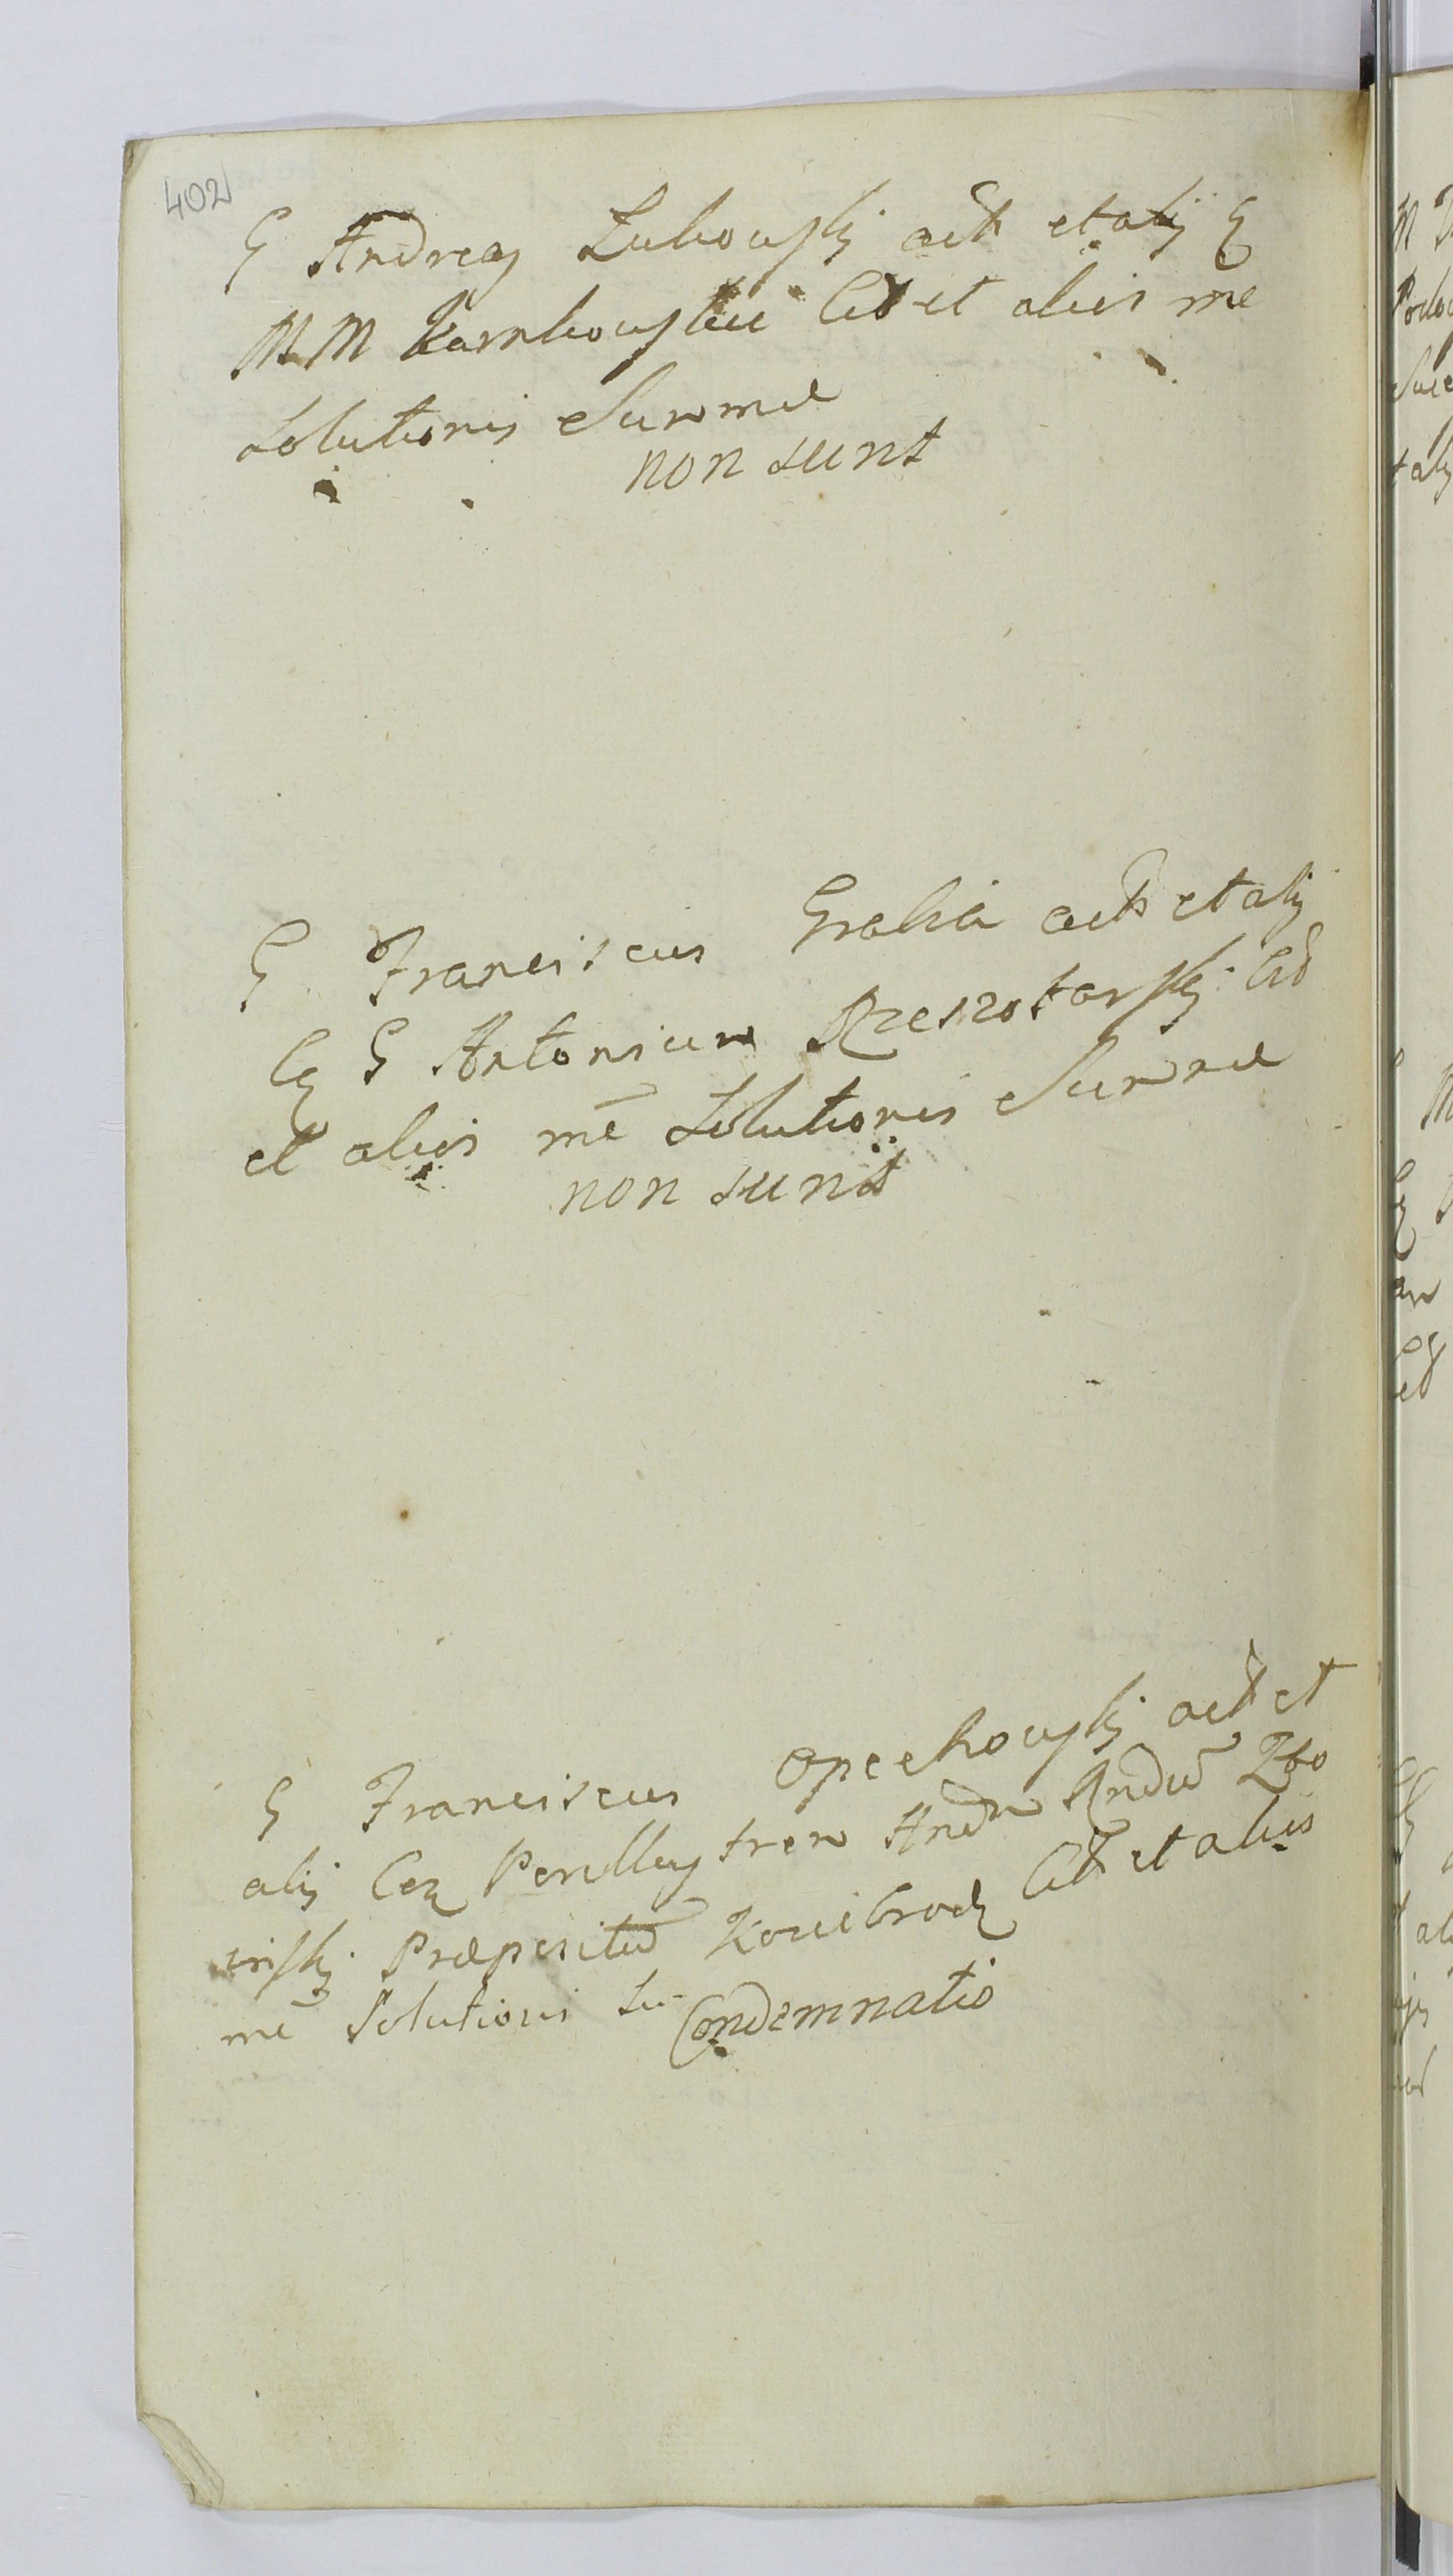 402
G Andreas Lubowskj act et alij C
M M Karnkowskie Cit et aliis me
Solutionis Summæ
non sunt
G Franciscus Grabia act et alij
C G Antonium Rzeszotarskj Cit
et aliis mē Solutionis Summæ
non sunt
G Franciscus Opechowskj act et
alij Perillustrem Andm Rndū Zbo
inskj Præpositū Kozibrody Cit et aliis
mē Solutionis Su-
Condemnatio